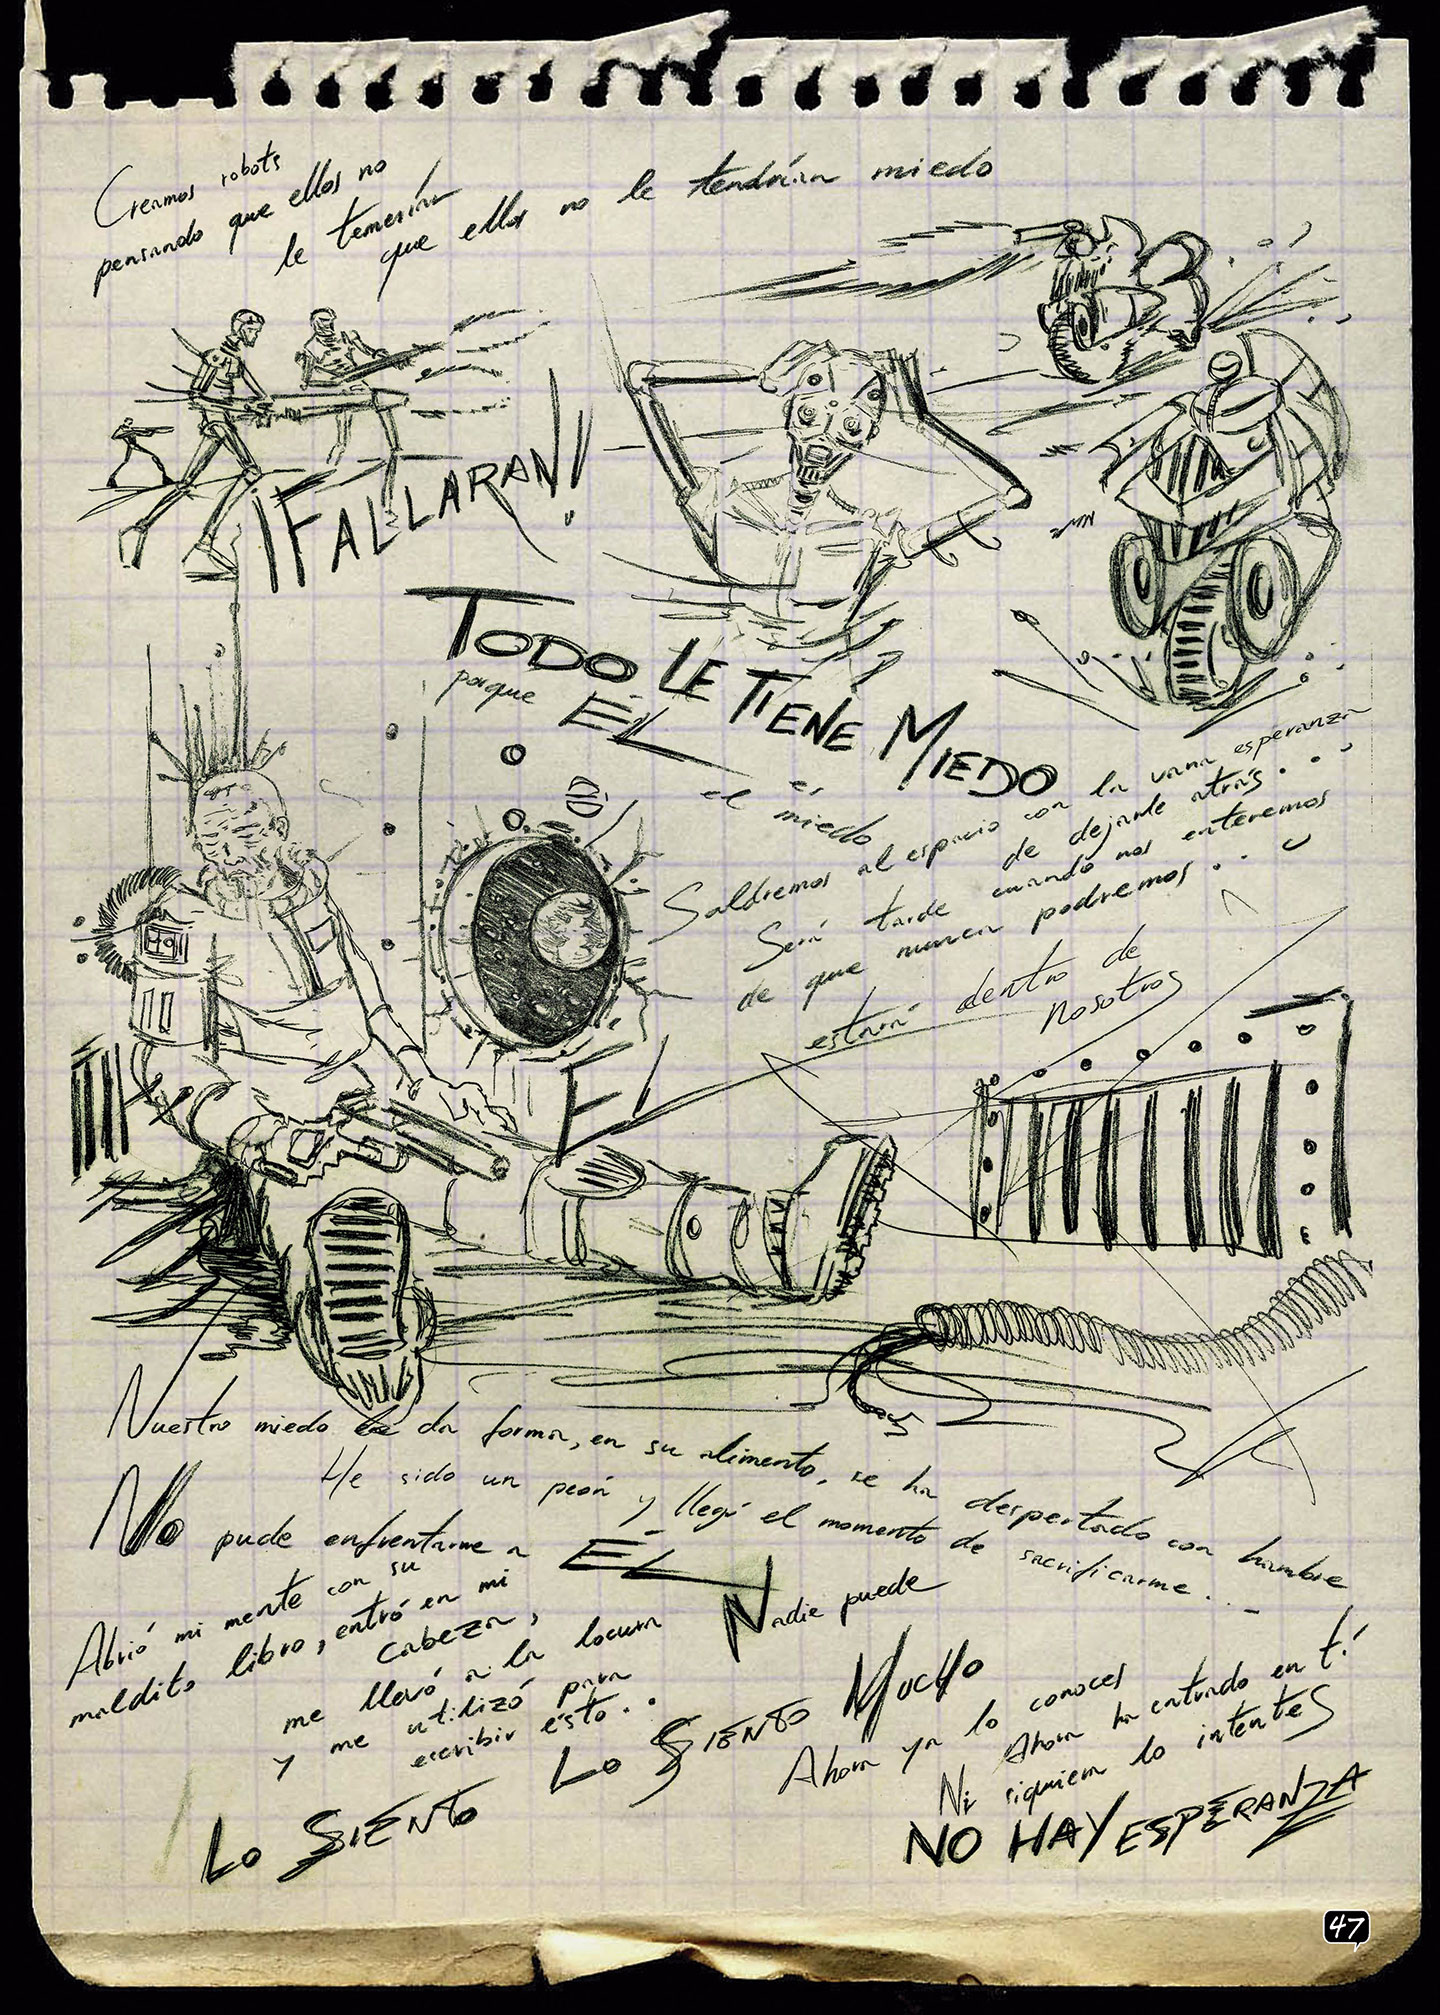 Creamos robots
pensando que ellos no
le temerían
que ellos no le tendrían miedo
¡FALLARAN!
TODO LE TIENE MIEDO
porque ÉL
es
el miedo
Saldremos al espacio con la vana esperanza
de dejarle atrás...
Será tarde cuando nos enteremos
de que nunca podremos...
estará dentro de
nosotros
Él
Nuestro miedo le da forma, en su alimento, se ha despertado con hambre
He sido un peón y llegó el momento de sacrificarme...
No pude enfrentarme a ÉL
Nadie puede
Abrió mi mente con su
maldito libro, entró en mi
cabeza,
me llevó a la locura
y me utilizó para
escribir esto...
LO SIENTO
LO SIENTO MUCHO
Ahora ya lo conoces
Ahora ha entrado en tí
Ni siquiera lo intentes
NO HAY ESPERANZA
47